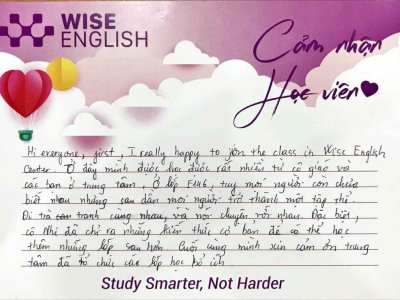 WISE
ENGLISH
Cảm nhận
Học viên
Hi everyone, first, I really happy to join the class in Wise English
Center. Ở đây mình được học được rất nhiều từ cô giáo và
các bạn ở trung tâm. Ở lớp F146, tuy mọi người còn chưa
biết nhau nhưng sau dần mọi người trở thành một tập thể.
Đi trà tranh cùng nhau, và nói chuyện với nhau. Đặc biệt,
cô Nhi đã chỉ ra những kiến thức cơ bản để có thể học
thêm những lớp sau hơn. Cuối cùng mình xin cảm ơn trung
tâm đã tổ chức các lớp học bổ ích.
Study Smarter, Not Harder